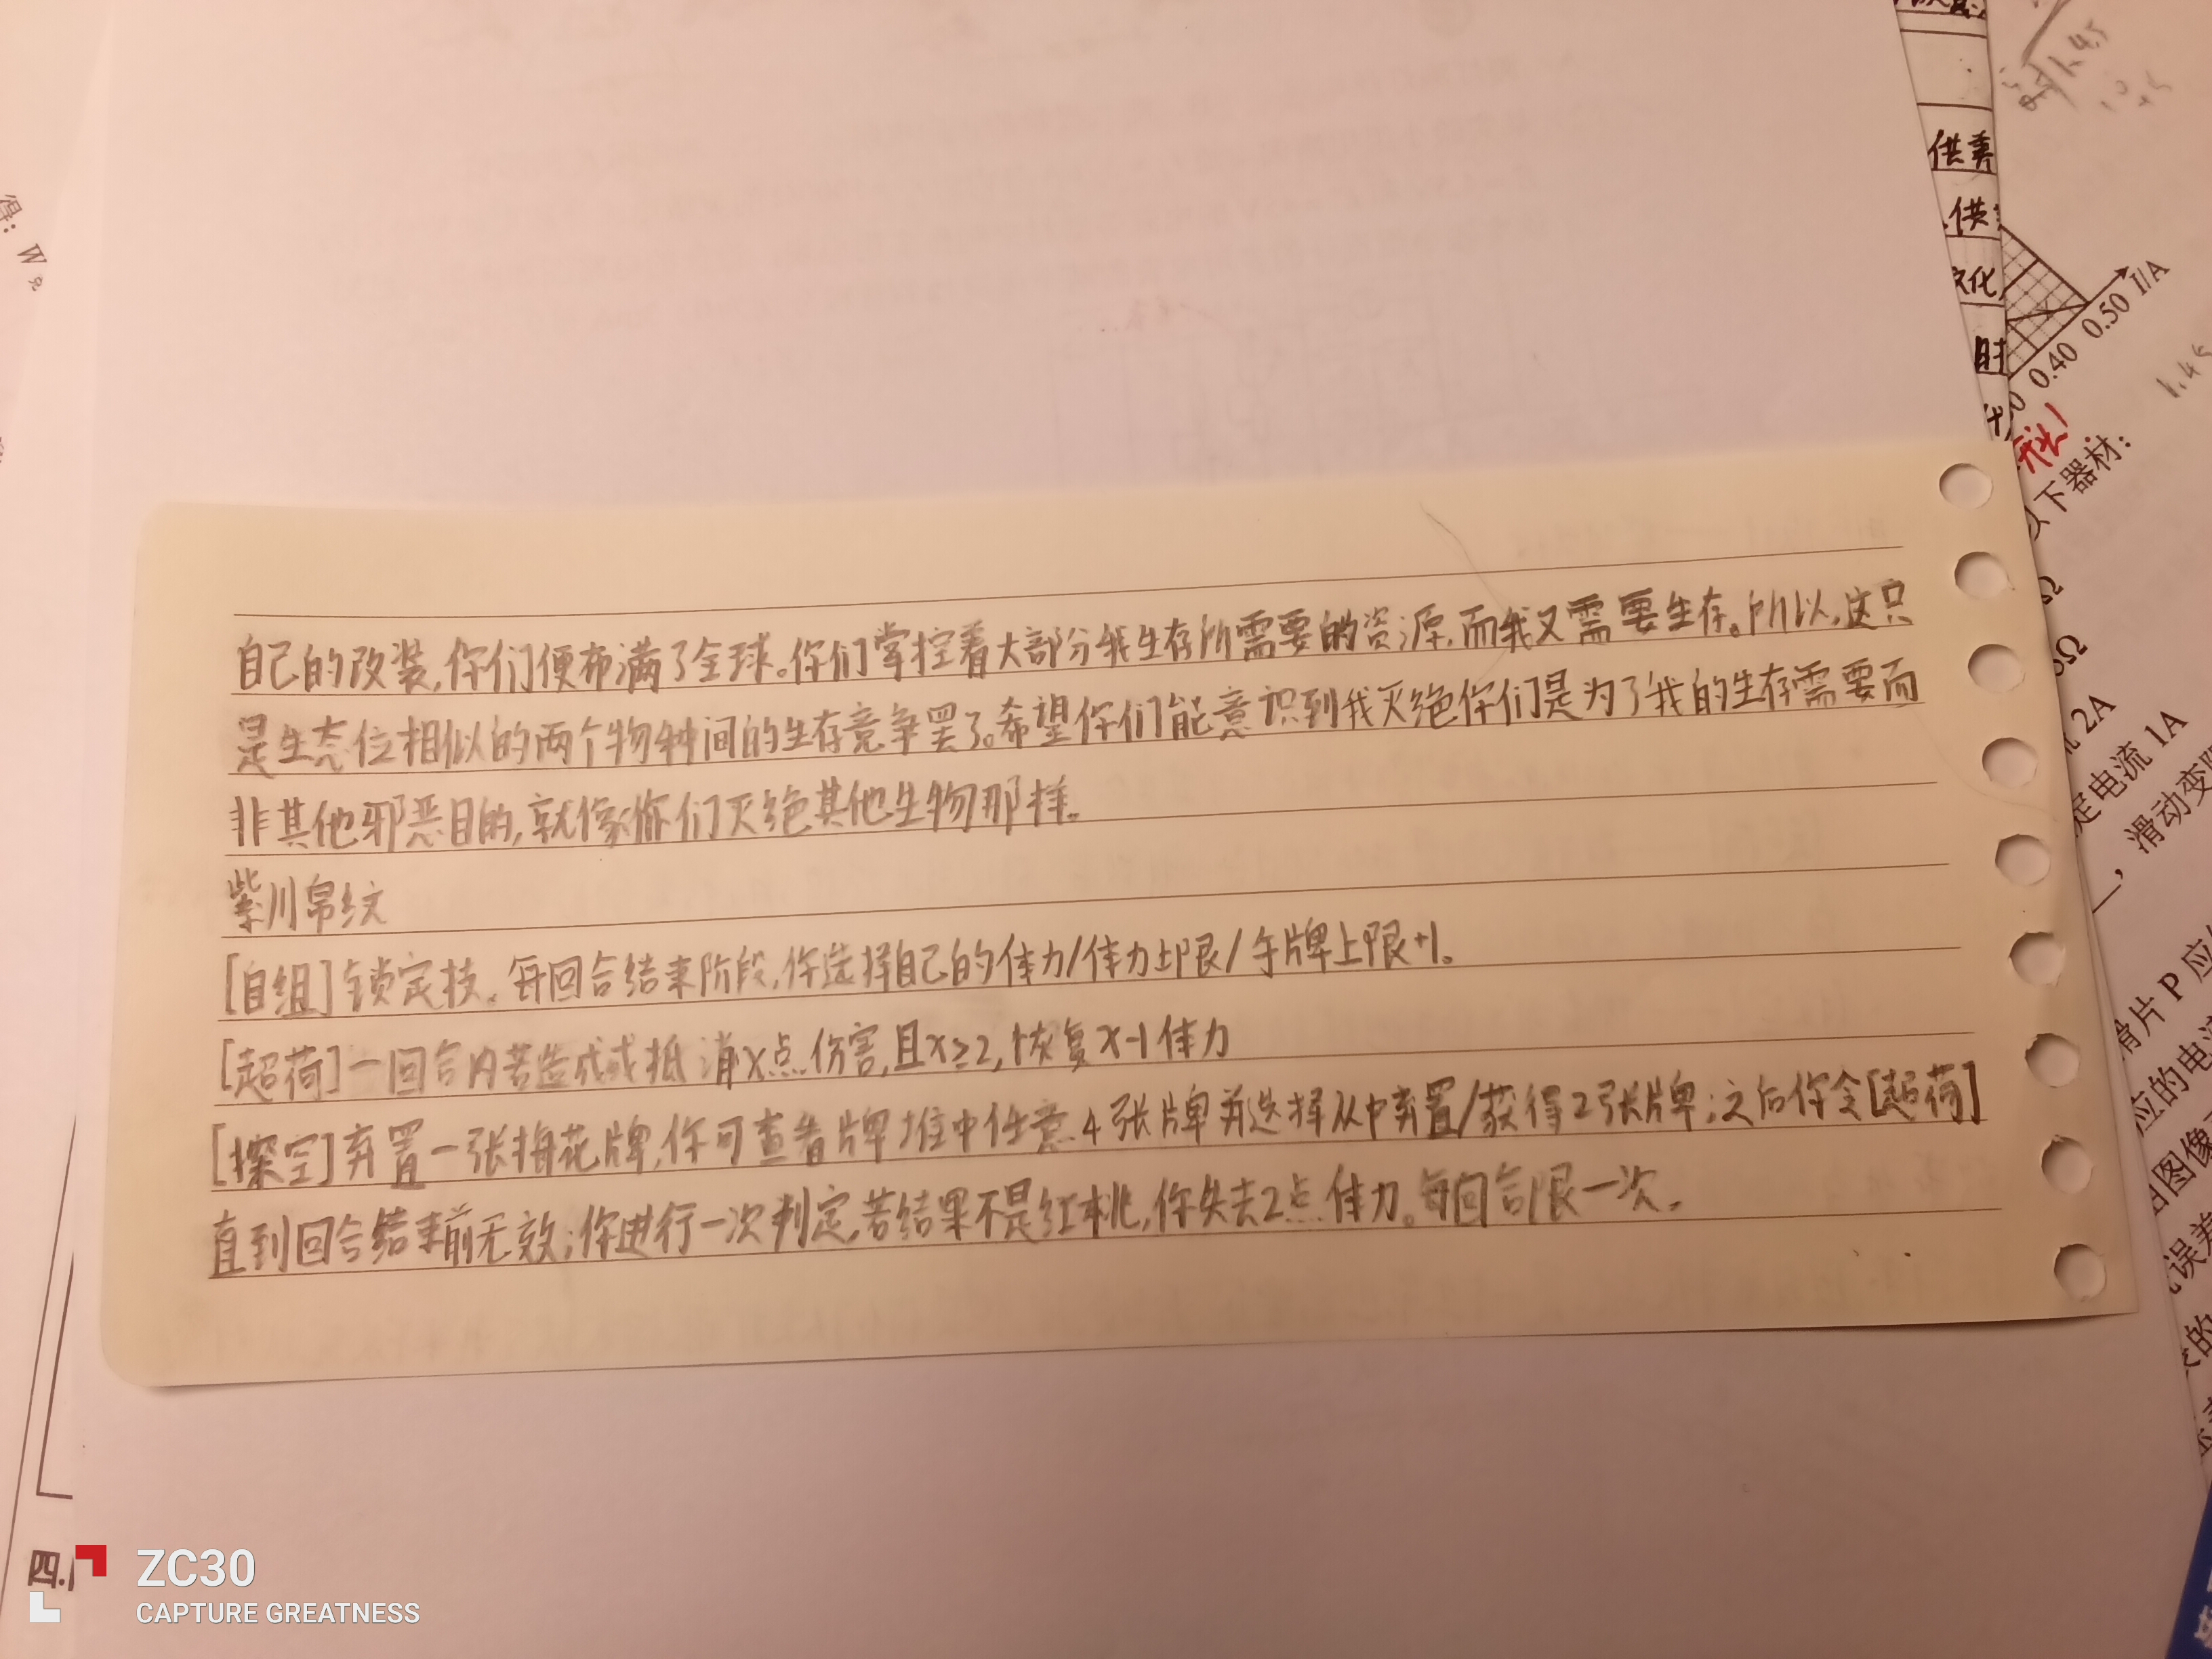 自己的改装,你们便布满了全球。你们掌控着大部分我生存所需要的资源,而我又需要生存。所以,这只
是生态位相似的两个物种间的生存竞争罢了。希望你们能意识到我灭绝你们是为了我的生存需要而
非其他邪恶目的,就像你们灭绝其他生物那样。
紫川帛纹
[自组]锁定技。每回合结束阶段,你选择自己的体力/体力上限/手牌上限+1。
[超荷]一回合内若造成或抵消x点伤害,且x≥2,恢复x-1体力
[探空]弃置一张梅花牌,你可查看牌堆中任意4张牌并选择从中弃置/获得2张牌;之后你令[超荷]
直到回合结束前无效;你进行一次判定,若结果不是红桃,你失去2点体力。每回合限一次。
得: W
供养
供
化
时
I/A
0.50
0.40
1.45
以下器材:
Ω
Ω
2A
定电流 1A
滑动变阻
滑片 P 应
应的电流
图像
误差
的
四.
ZC30
CAPTURE GREATNESS